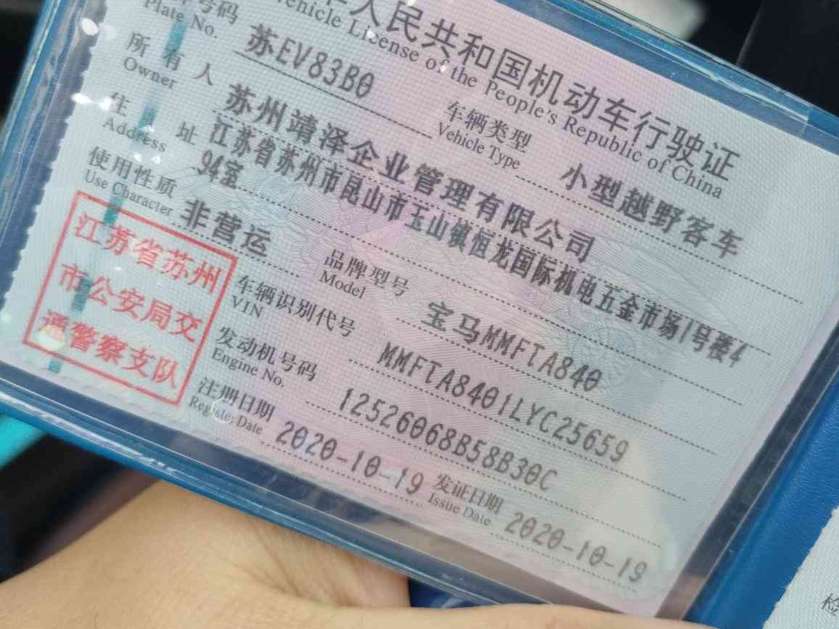 人民共和国机动车行驶证
Vehicle License of the People's Republic of China
号码
Plate No.
苏EV83B0
车辆类型
Vehicle Type
小型越野客车
所有人
Owner
苏州靖泽企业管理有限公司
住址
Address
江苏省苏州市昆山市玉山镇恒龙国际机电五金市场1号楼4
94室
使用性质
Use Character
非营运
品牌型号
Model
宝马MMFTA840
江苏省苏州
市公安局交
通警察支队
车辆识别代号
VIN
MMFTA8401LYC25659
发动机号码
Engine No.
12526068B58B30C
注册日期
Register Date
2020-10-19
发证日期
Issue Date
2020-10-19